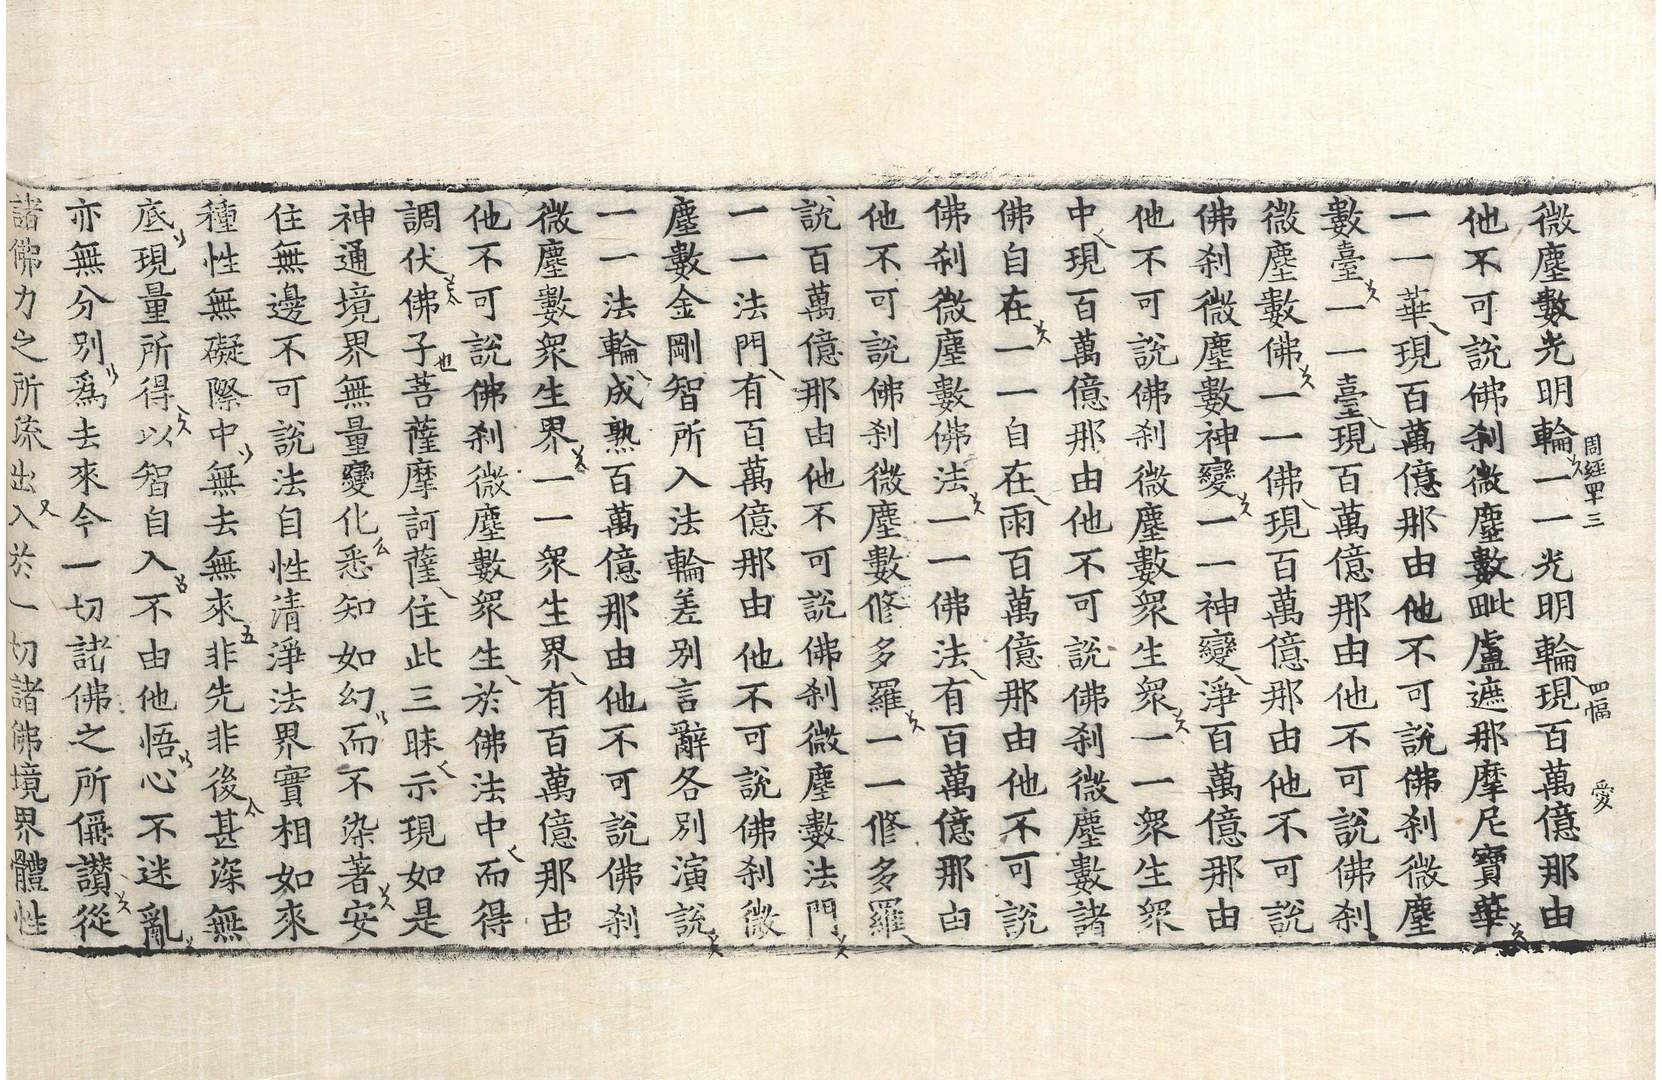 周経罒三 四幅 愛
微塵數光明輪一一光明輪現百萬億那由
他不可說佛刹微塵數毗盧遮那摩尼寶華
一一華現百萬億那由他不可說佛刹微塵
數臺一一臺現百萬億那由他不可說佛刹
微塵數佛一一佛現百萬億那由他不可說
佛刹微塵數神變一一神變淨百萬億那由
他不可說佛刹微塵數衆生衆一一衆生衆
中現百萬億那由他不可說佛刹微塵數諸
佛自在一一自在雨百萬億那由他不可說
佛刹微塵數佛法一一佛法有百萬億那由
他不可說佛刹微塵數修多羅一一修多羅
說百萬億那由他不可說佛刹微塵數法門
一一法門有百萬億那由他不可說佛刹微
塵數金剛智所入法輪差別言辭各別演說
一一法輪成熟百萬億那由他不可說佛刹
微塵數衆生界一一衆生界有百萬億那由
他不可說佛刹微塵數衆生於佛法中而得
調伏佛子菩薩摩訶薩住此三昧示現如是
神通境界無量變化悉知如幻而不染著安
住無邊不可說法自性清淨法界實相如來
種性無礙際中無去無來非先非後甚深無
底現量所得以智自入不由他悟心不迷亂
亦無分別爲去來今一切諸佛之所稱讚從
諸佛力之所流出入於一切諸佛境界體性